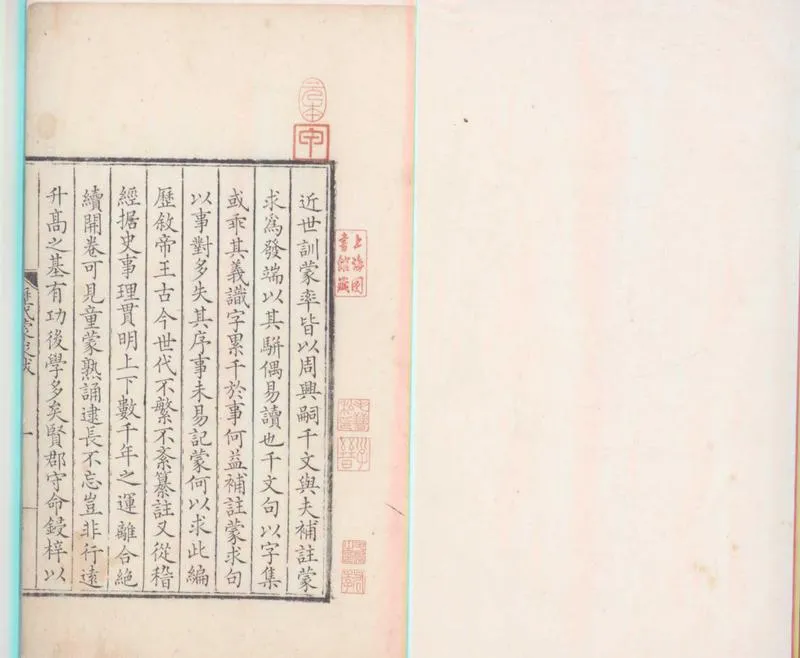 元本
甲
上海圖
書館藏
近世訓蒙率皆以周興嗣千文與夫補註蒙
求爲發端以其駢偶易讀也千文句以字集
或乖其義識字累千於事何益補註蒙求句
以事對多失其序事未易記蒙何以求此編
歷敘帝王古今世代不繁不紊纂註又從稽
經据史事理貫明上下數千年之運離合絶
續開卷可見童蒙熟誦逮長不忘豈非行遠
升髙之基有功後學多矣賢郡守命鋟梓以